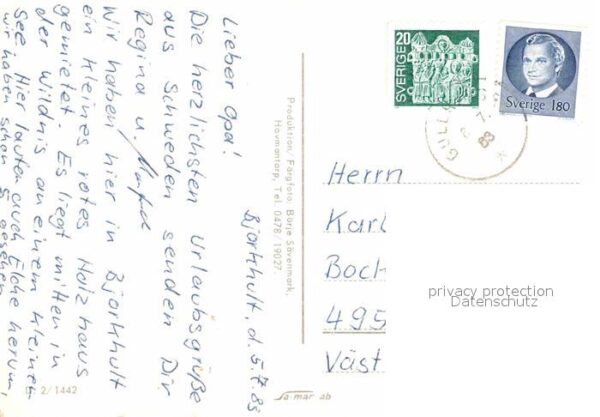 Björkhult, d. 5.7.83
Lieber Opa!
Die herzlichsten Urlaubsgrüße
aus Schweden senden Dir
Regina u. Manfred
Wir haben hier in Björkhult
ein kleines rotes Holzhaus
gemietet. Es liegt mitten in
der Wildnis an einem kleinen
See. Hier laufen auch Elche herum,
wir haben schon 5 gesehen.
2/1442
Produktion/Färgfoto: Börje Sävenmark,
Hovmantorp, Tel. 0478/19027.
Sa-mar ab
SVERIGE 20
Sverige 1.80
83
Herrn
Karl
Boch
495
Väst
privacy protection
Datenschutz